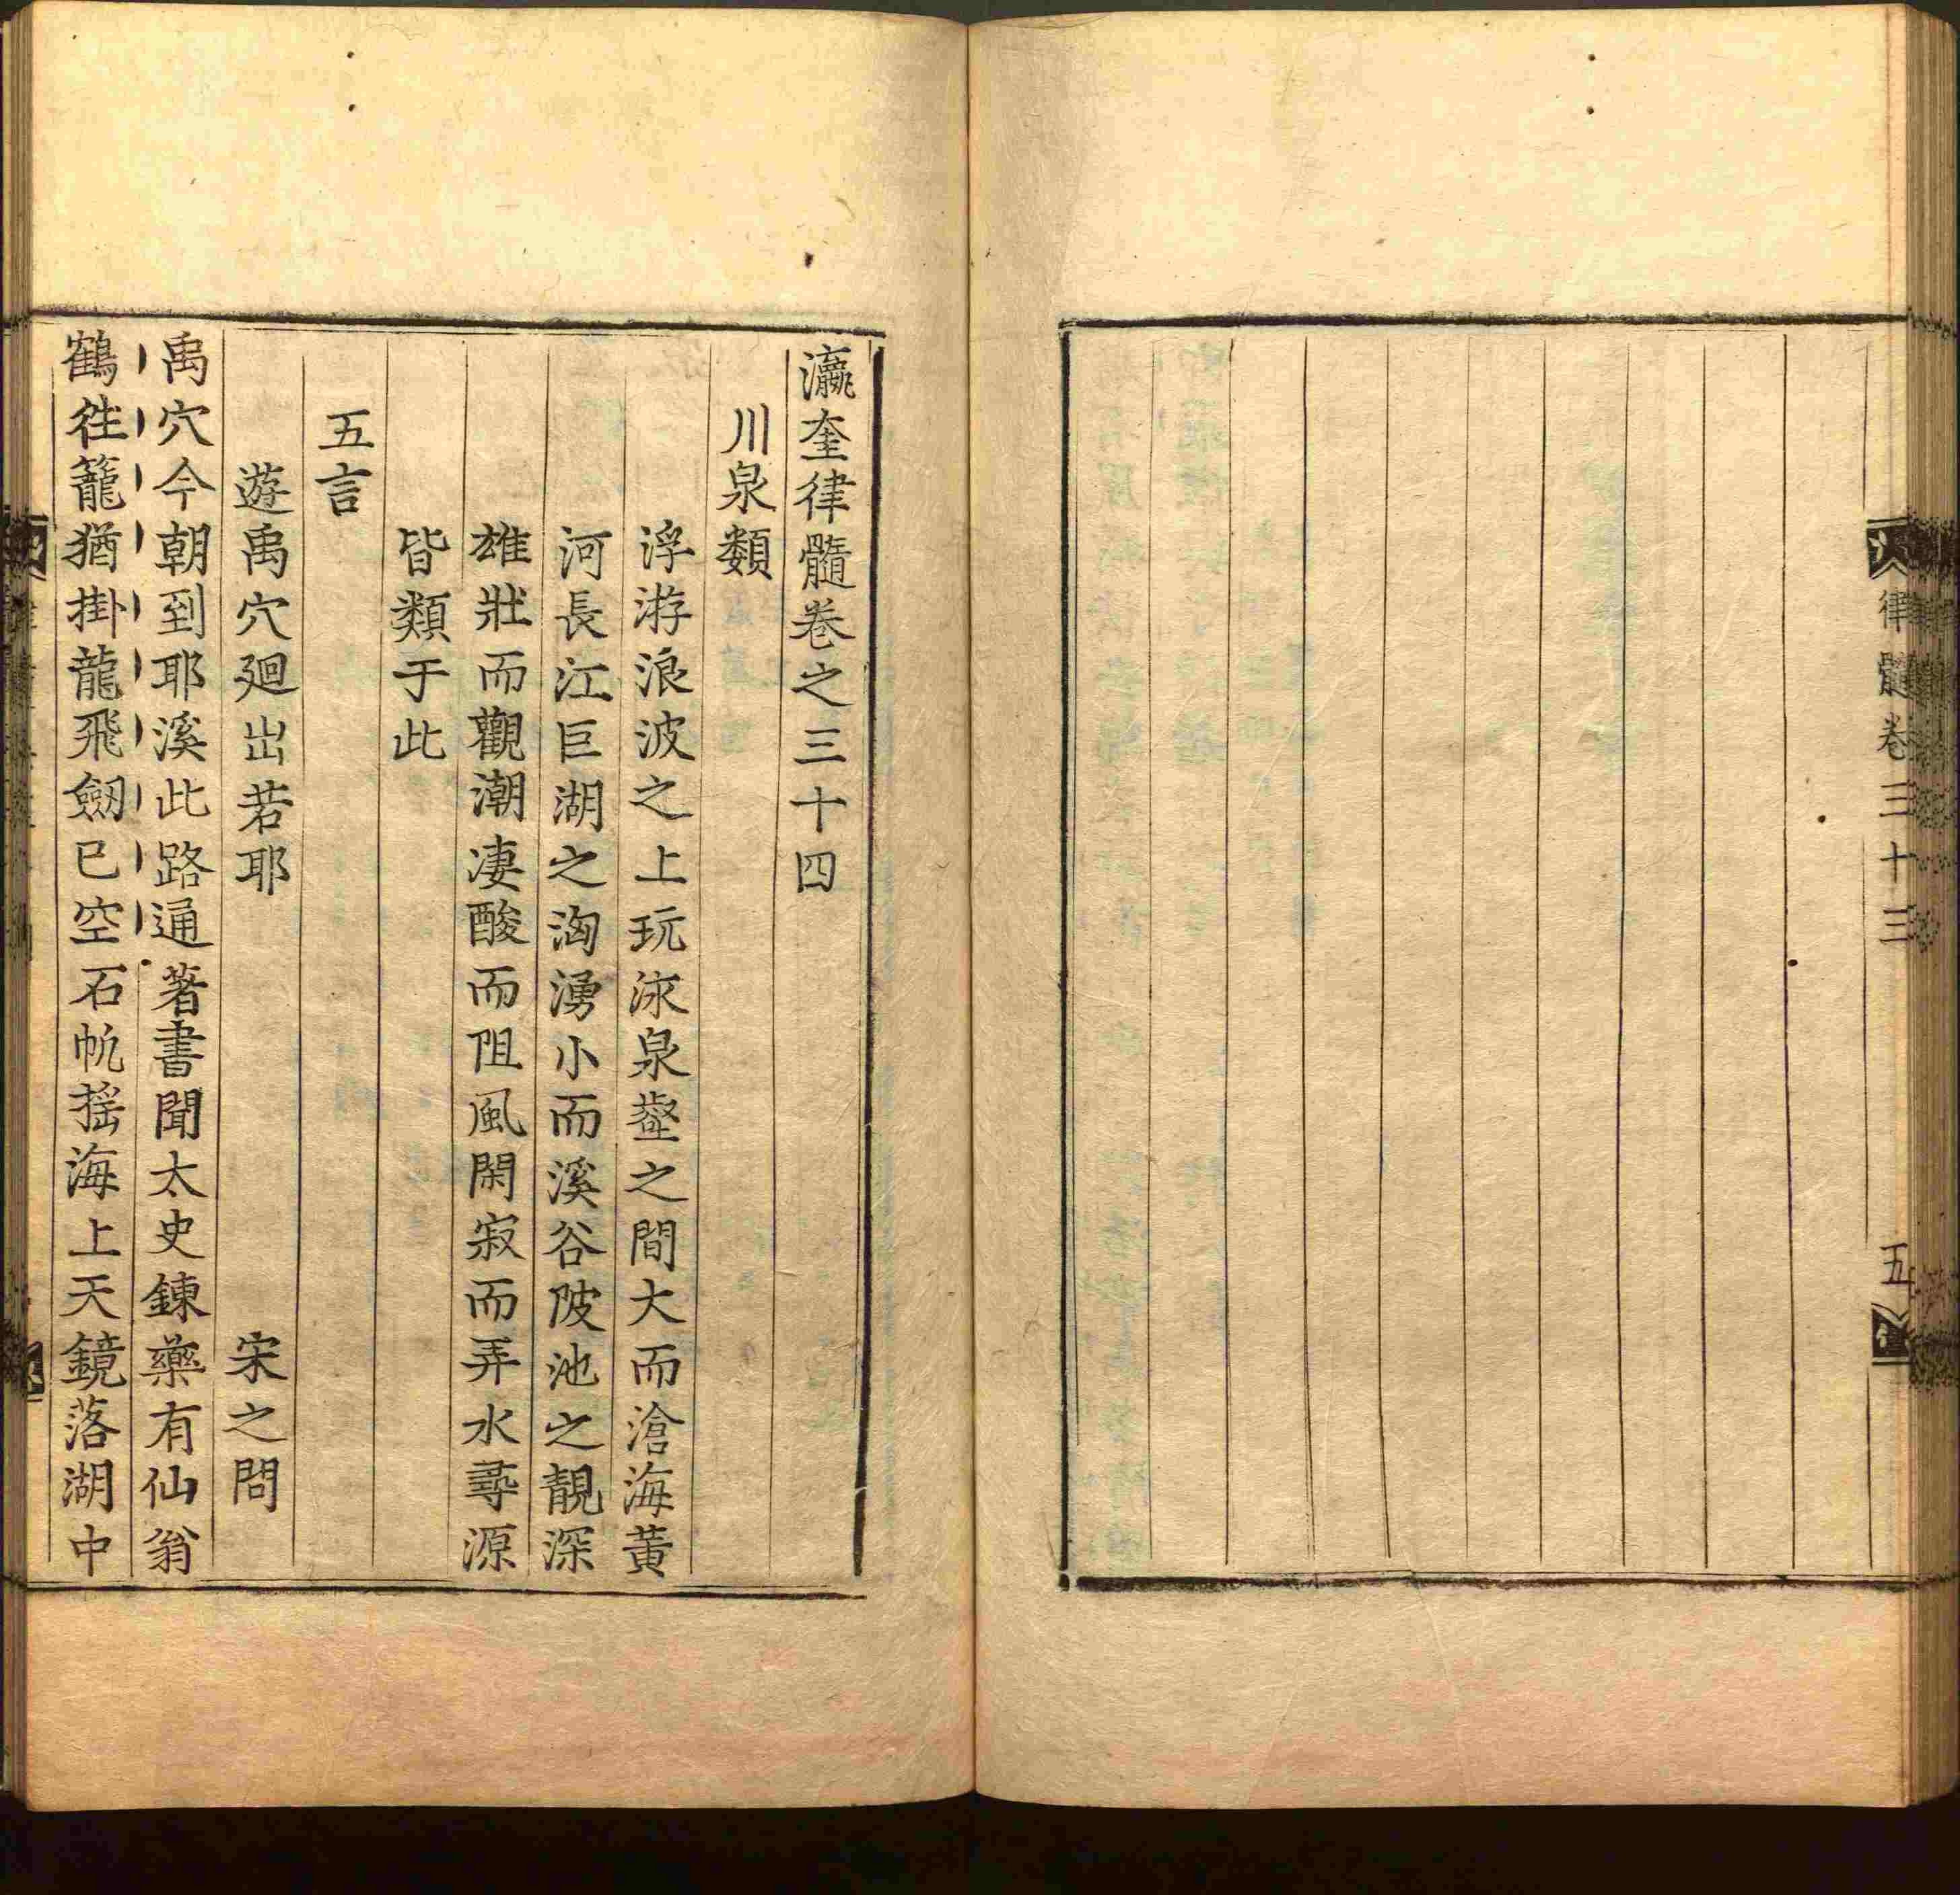 律髓卷三十三
五
瀛奎律髓卷之三十四
川泉類
浮游浪波之上玩泳泉壑之間大而滄海黃
河長江巨湖之洶湧小而溪谷陂池之靚深
雄壯而觀潮凄酸而阻風閑寂而弄水尋源
皆類于此
五言
遊禹穴廻出若耶
宋之問
禹穴今朝到耶溪此路通著書聞太史鍊藥有仙翁
鶴徃籠猶掛龍飛劒已空石帆揺海上天鏡落湖中